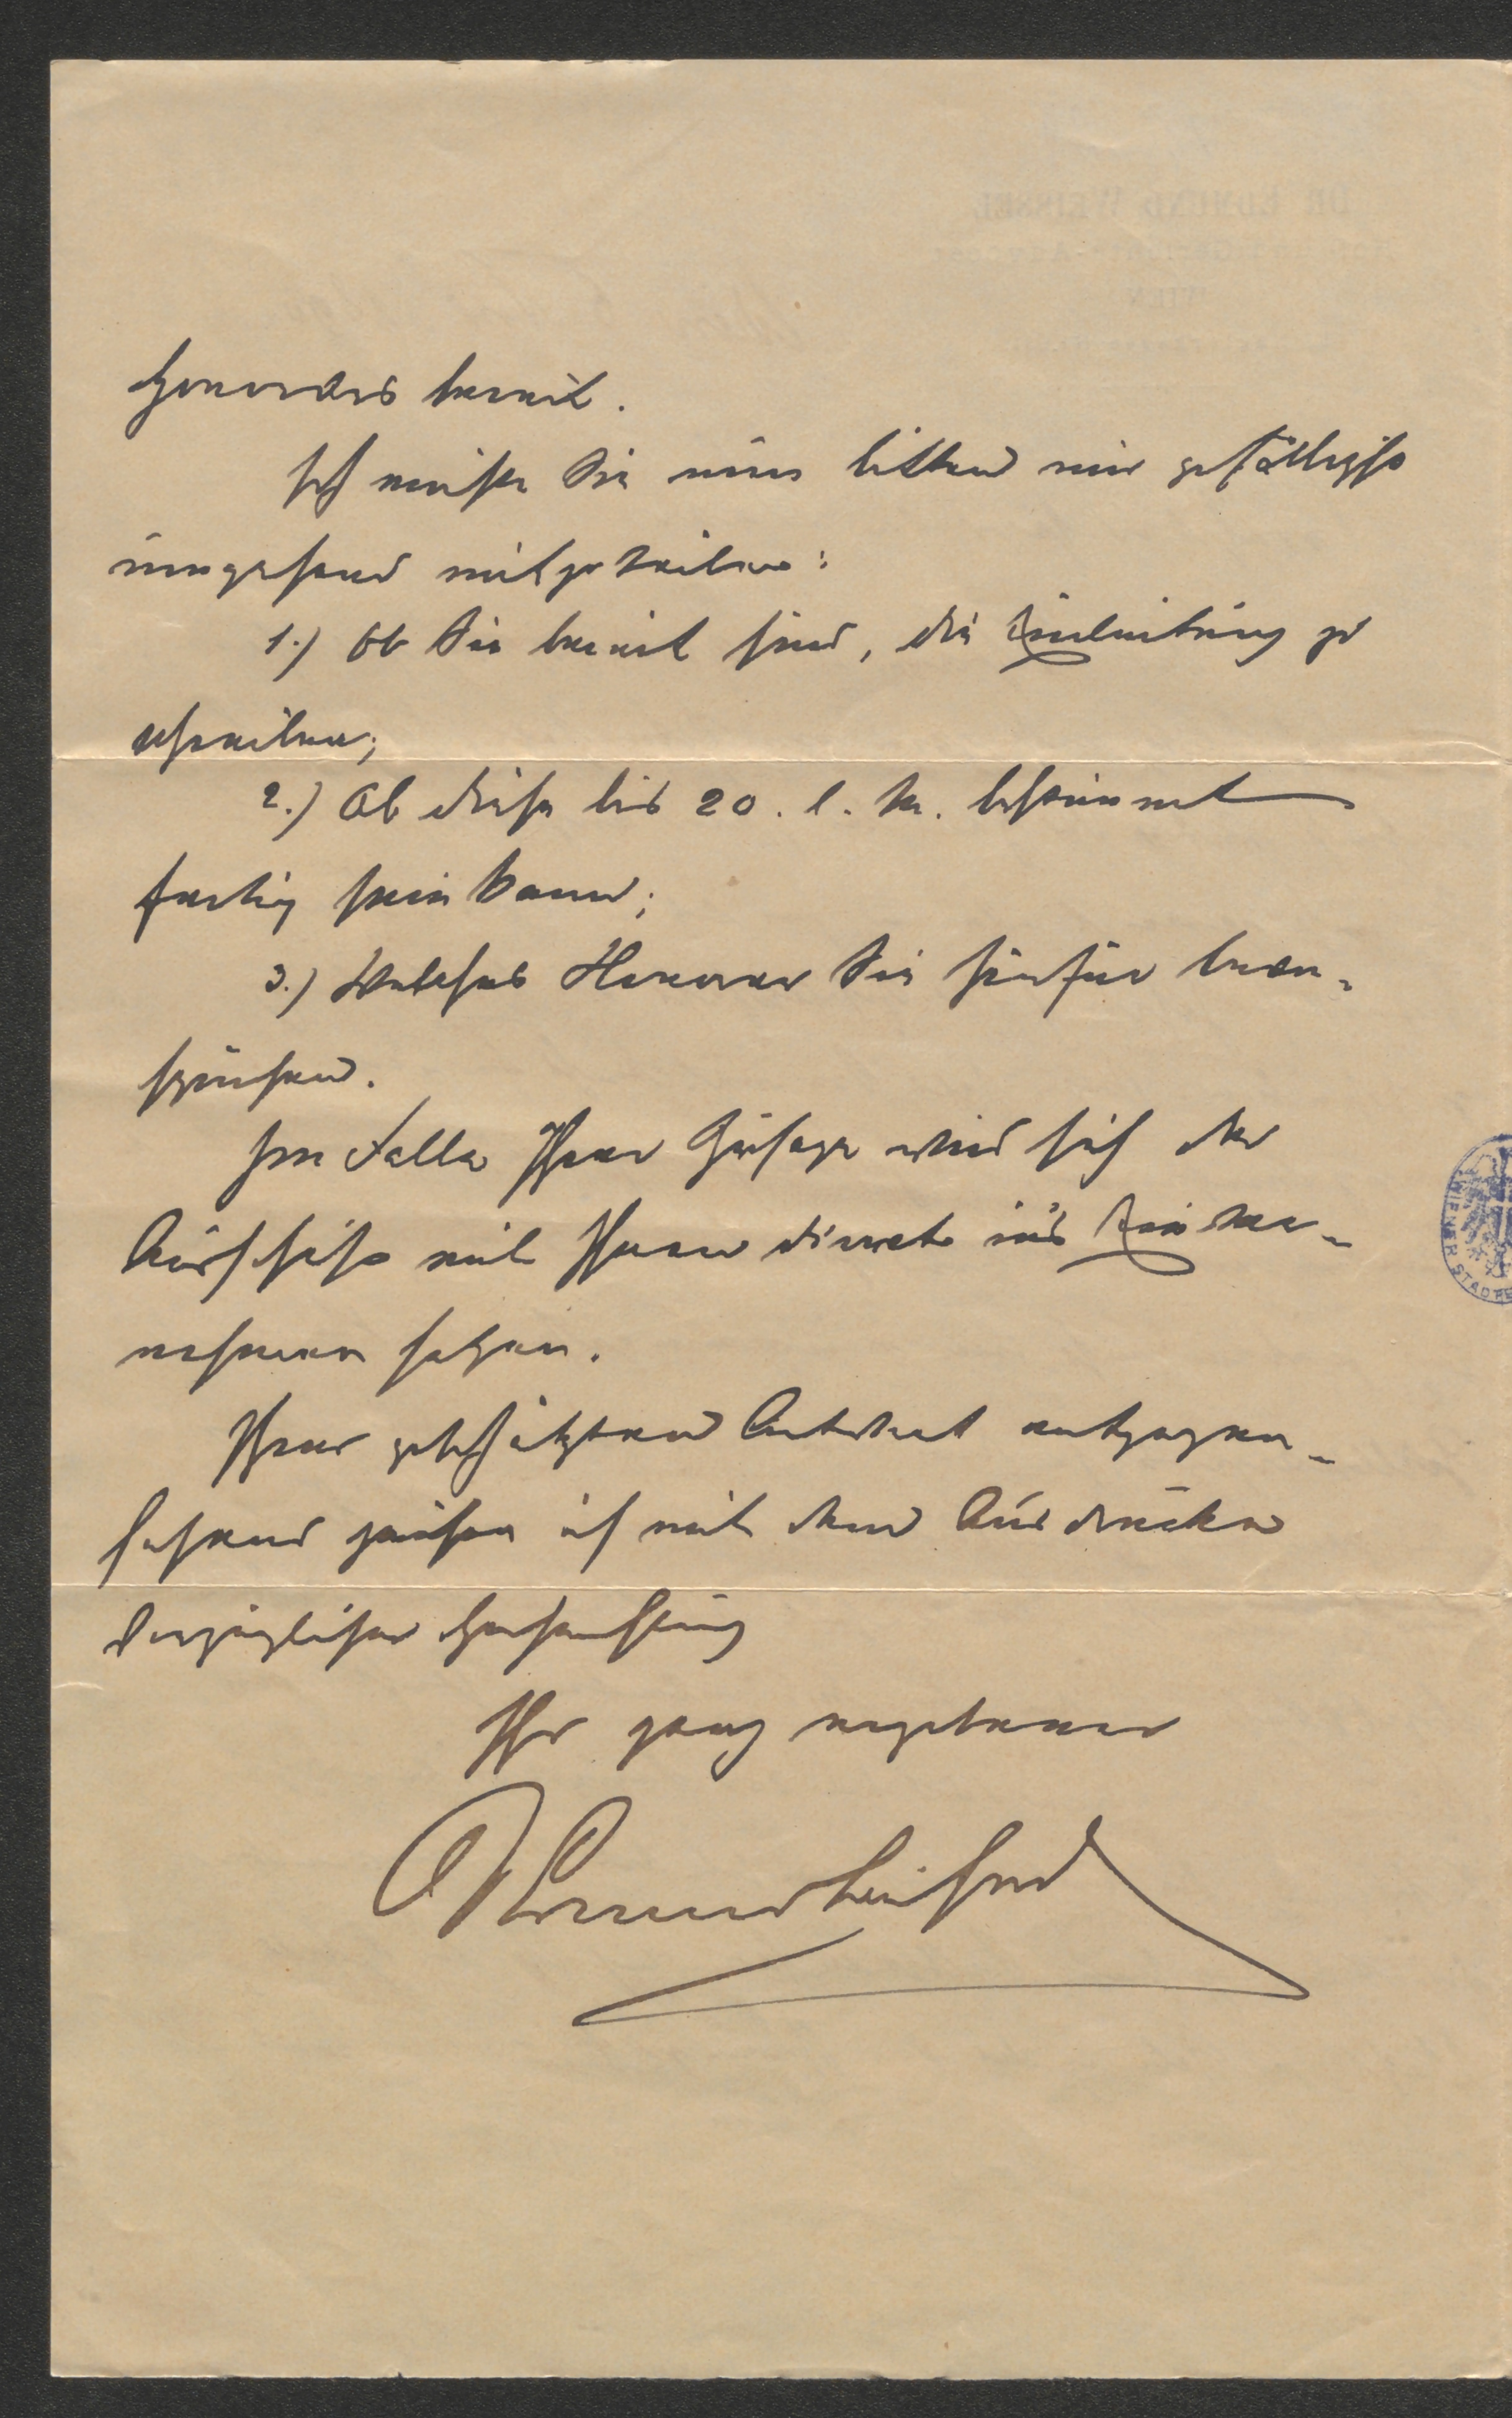 Honorars bereit.
Ich möchte Sie nun bitten mir gefälligst
umgehend mitzuteilen:
1.) Ob Sie bereit sind, die Einleitung zu
schreiben;
2.) Ob diese bis 20. l. M. bestimmt
fertig sein kann;
3.) Welches Honorar Sie hiefür bean-
spruchen.
Im Falle Ihrer Zusage wird sich der
Ausschuss mit Ihnen direct ins Einver-
nehmen setzen.
Ihrer geschätzten Antwort entgegen-
sehend zeichne ich mit dem Ausdrucke
vorzüglicher Hochachtung
Ihr ganz ergebener
WIENER STADT
DR EDMUND WEISSEL
WIEN